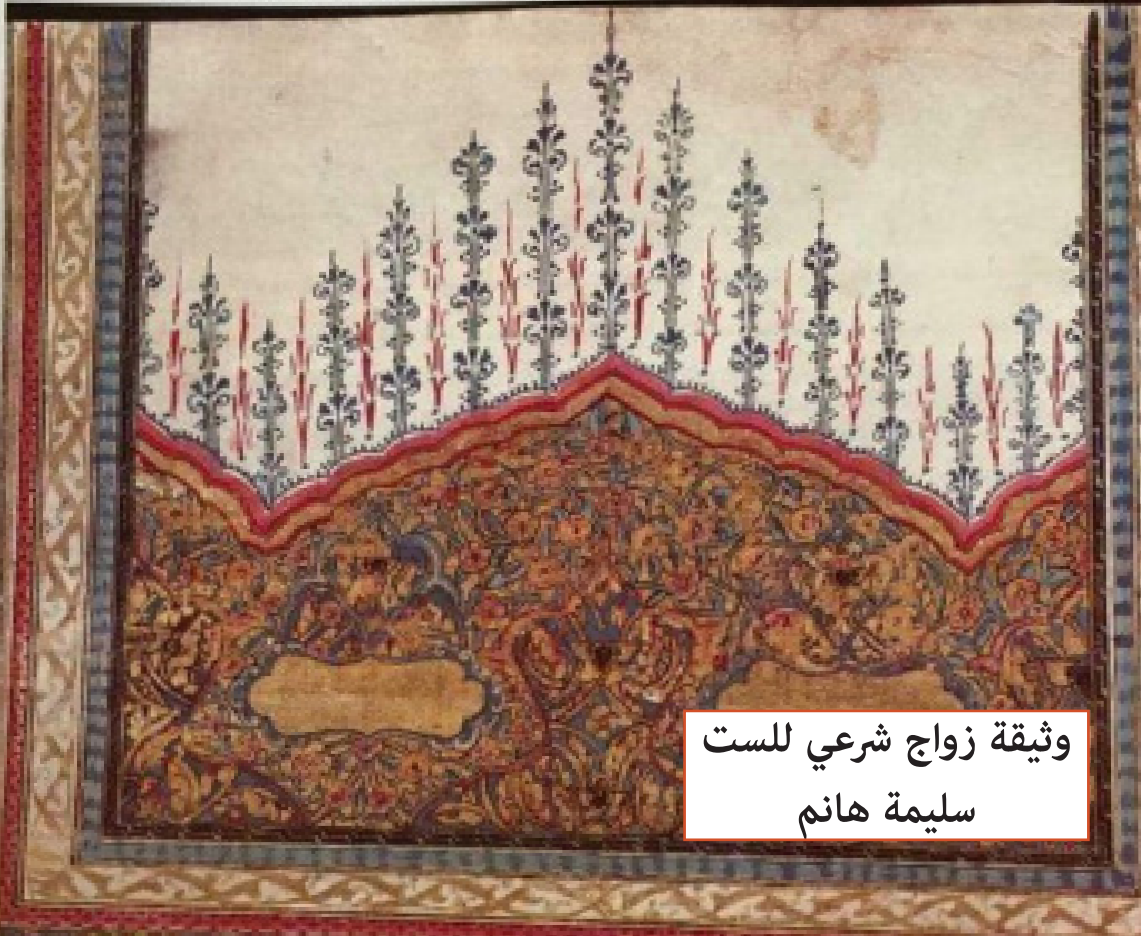 وثيقة زواج شرعي للست
سليمة هانم